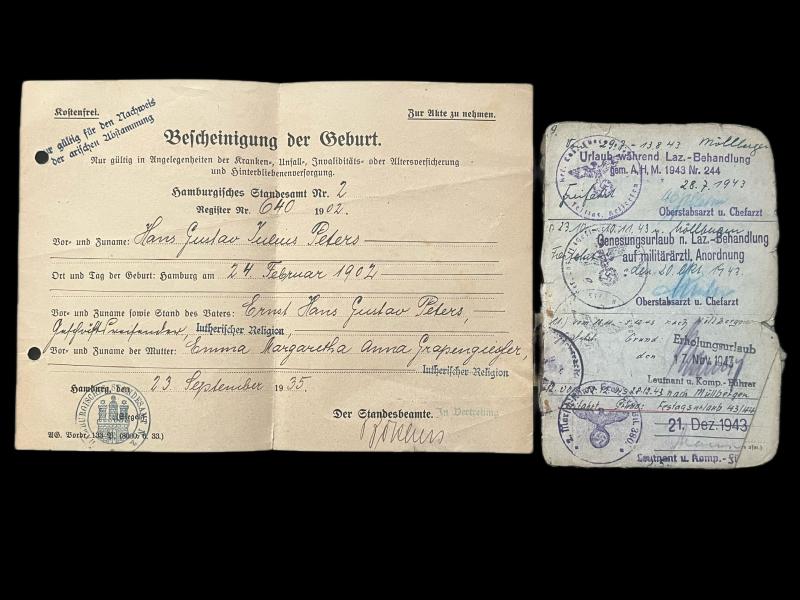 Kostenfrei.
Zur Akte zu nehmen.
nur gültig für den Nachweis
der arischen Abstammung
Bescheinigung der Geburt.
Nur gültig in Angelegenheiten der Kranken-, Unfall-, Invaliditäts- oder Altersversicherung
und Hinterbliebenenversorgung.
Hamburgisches Standesamt Nr. 2
Register Nr. 640 1902.
Vor- und Zuname: Hans Gustav Julius Peters
Ort und Tag der Geburt: Hamburg am 24 Februar 1902
Vor- und Zuname sowie Stand des Vaters: Ernst Hans Gustav Peters,
Geschäftsreisender, lutherischer Religion,
Vor- und Zuname der Mutter: Emma Margaretha Anna Grapengießer,
lutherischer Religion
Hamburg, den 23 September 1935.
Der Standesbeamte.
In Vertretung
29.7. - 13.8.43
Urlaub während Laz.-Behandlung
gem. A.H.M. 1943 Nr. 244
28.7.1943
Freifahrt
Oberstabsarzt u. Chefarzt
10.11.43
Genesungsurlaub n. Laz.-Behandlung
auf militärärztl. Anordnung
den 1943.
Oberstabsarzt u. Chefarzt
nach
Grund: Erholungsurlaub
den 17. Nov. 1943
Leutnant u. Komp.-Führer
28.12.43 nach
Grund: Festtagsurlaub 43/44
21. Dez. 1943
Leutnant u. Komp.-